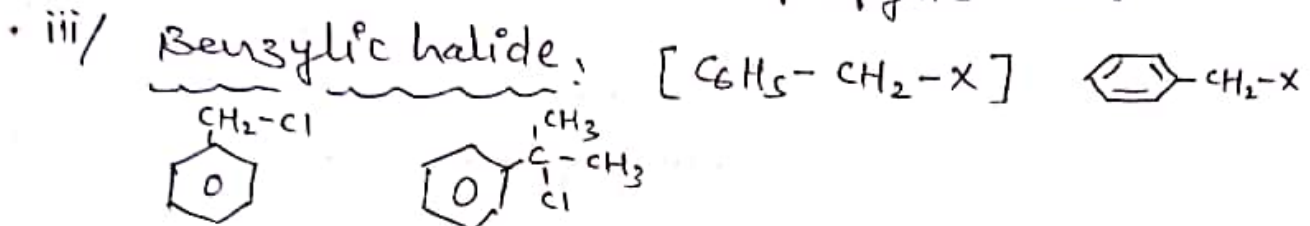 • iii/ Benzylic halide: [C6H5- CH2-X] -CH2-X
CH2-Cl
CH3
C-CH3
Cl